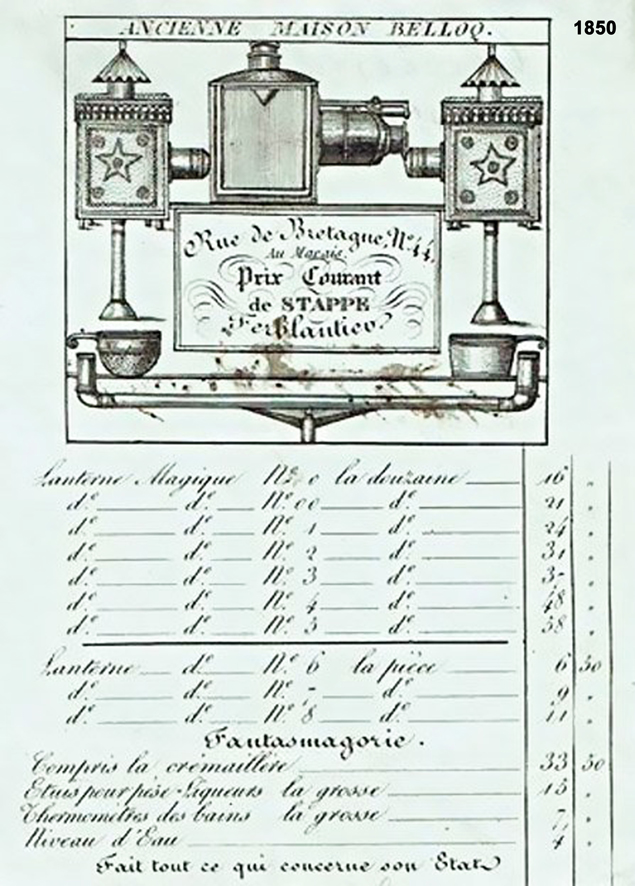 ANCIENNE MAISON BELLOQ.
1850
Rue de Bretagne, N.º 44.
Au Marais.
Prix Courant
de STAPPE
Ferblantier
Lanterne Magique N.º 0 la douzaine 16 "
d.º d.º N.º 00 d.º 21 "
d.º d.º N.º 1 d.º 24 "
d.º d.º N.º 2 d.º 31 "
d.º d.º N.º 3 d.º 37 "
d.º d.º N.º 4 d.º 48 "
d.º d.º N.º 5 d.º 58 "
Lanterne d.º N.º 6 la pièce 6 50
d.º d.º N.º 7 d.º 9 "
d.º d.º N.º 8 d.º 11 "
Fantasmagorie.
Compris la crémaillère 33 50
Etuis pour pèse-Liqueurs la grosse 15 "
Thermomètres des bains la grosse 7 "
Niveau d'Eau 4 "
Fait tout ce qui concerne son Etat